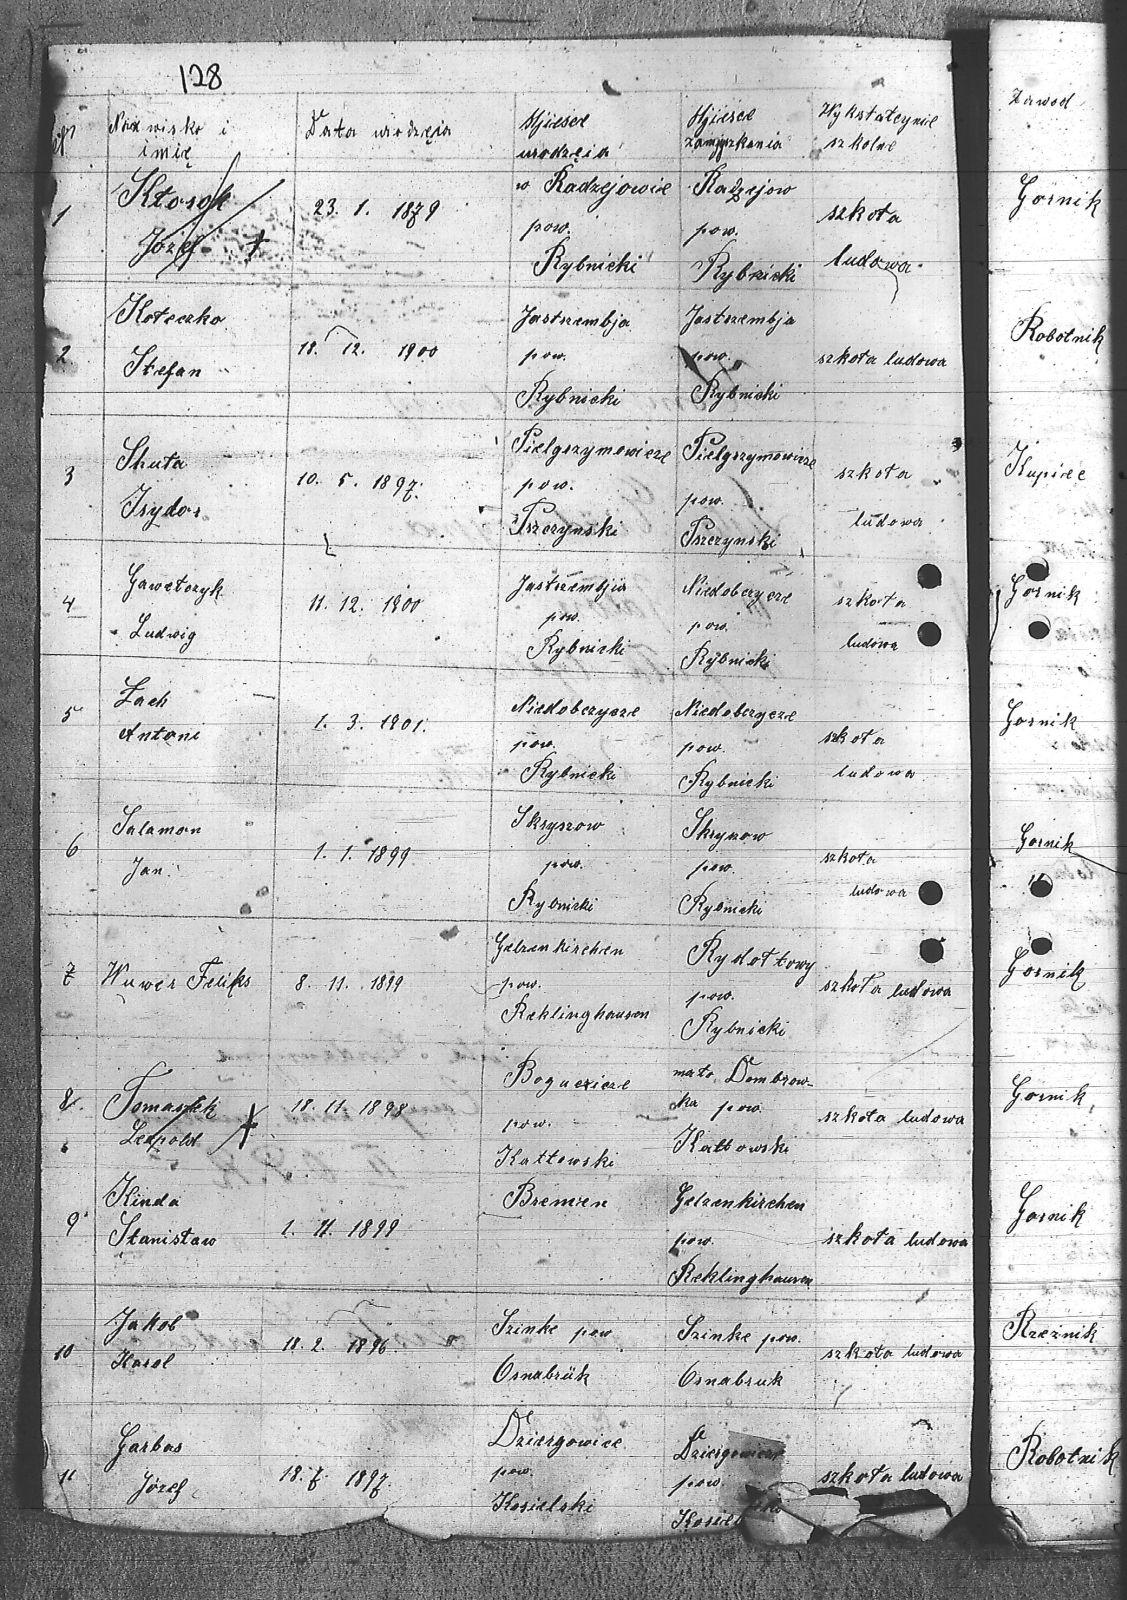 128
Nazwisko i
imię
Data urodzęia
Mjiesce
urodzęia
Mjiesce
zamjszkania
Wykstatcynie
szkolne
Zawod
1
Kłosok
Józef
23. 1. 1879
w Radzejowie
pow.
Rybnicki
Radzejow
pow.
Rybnicki
szkoła
ludowa
Gornik
2
Koteczko
Stefan
18. 12. 1900
Jastrzembja
pow.
Rybnicki
Jastrzembja
pow.
Rybnicki
szkoła ludowa
Robotnik
3
Skuta
Isydor
10. 5. 1897.
Pielgrzymowicze
pow.
Pszczynski
Pielgrzymowicze
pow.
Pszczynski
szkoła
ludowa
Kupiec
4
Gawełczyk
Ludwig
11. 12. 1900
Jastrzembjia
pow.
Rybnicki
Niedobczycze
pow.
Rybnicki
szkoła
ludowa
Gornik
5
Zach
Antoni
1. 3. 1901.
Niedobczycze
pow.
Rybnicki
Niedobczycze
pow.
Rybnicki
szkoła
ludowa
Gornik
6
Salamon
Jan
1. 1. 1899
Skryszow
pow.
Rybnicki
Skrzyszow
pow.
Rybnicki
szkoła
ludowa
Gornik
7
Wuwer Feliks
8. 11. 1899
Gelzenkirchen
pow.
Reklinghausen
Rydołtowy
pow.
Rybnicki
szkoła ludowa
Gornik
8.
Tomaszek
Leopold
18. 11. 1898
Bogucicze
pow.
Kattowski
mato Dombrow-
ka pow.
Kattowski
szkoła ludowa
Gornik
9
Kinda
Stanisław
1. 11. 1899
Bremen
Gelzenkirchen
pow.
Reklinghausen
szkoła ludowa
Gornik
10
Jakob
Karol
18. 2. 1896
Szinke pow
Osnabrük
Szinke pow.
Osnabruk
szkoła ludowa
Rzeźnik
11
Garbas
Józef
18. 7. 1897.
Dziergowice
pow.
Kosielski
Dziergowicze
pow.
szkoła ludowa
Robotnik